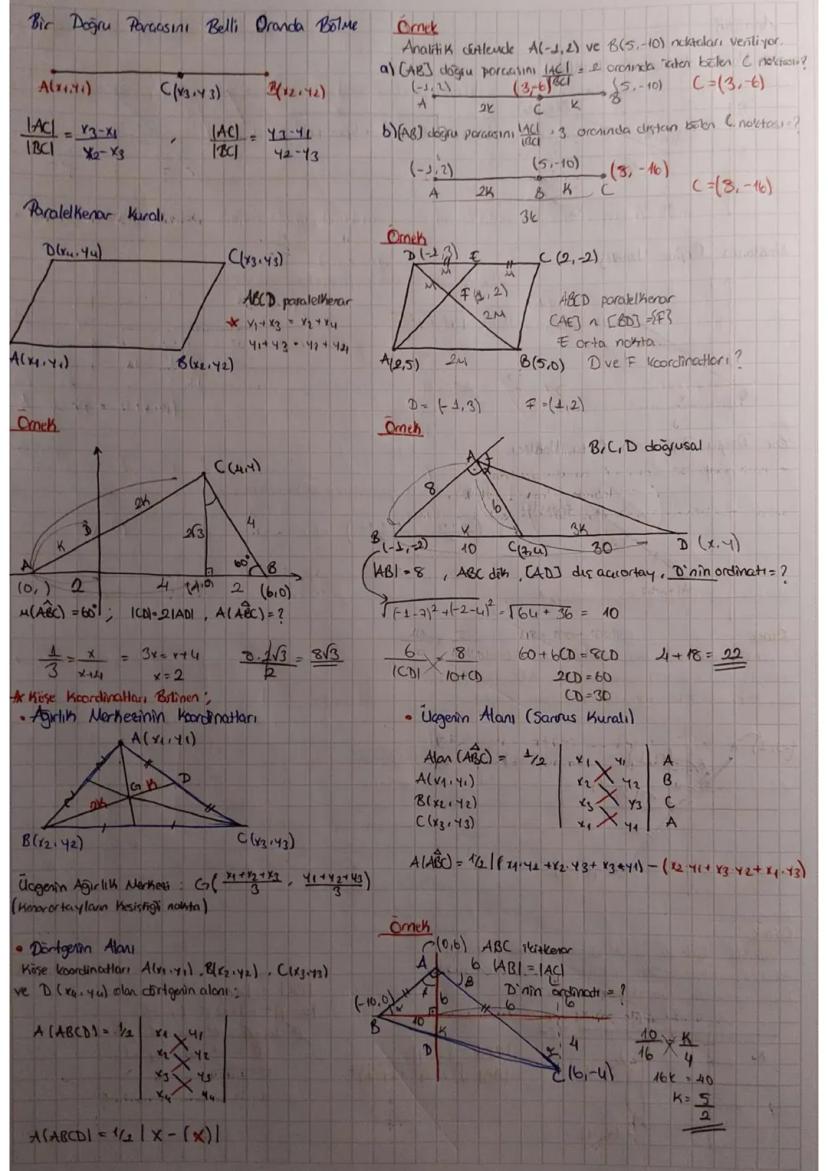 Bir Doğru Parçasını Belli Oranda Bölme
A(x1,y1) C(x3,y3) B(x2,y2)
|AC| / |BC| = x3-x1 / x2-x3 , |AC| / |BC| = y3-y1 / y2-y3
Paralelkenar Kuralı
D(x4,y4) C(x3,y3)
ABCD paralelkenar
* x1+x3 = x2+x4
y1+y3 = y2+y4
A(x1,y1) B(x2,y2)
Örnek
C(4,4)
2K
B
K
2√3 4
60°
A B
(0, ) 2 4 2 (6,0)
m(ABC) = 60° ; |CD|=2|AD| , A(ABC)=?
1/3 = x/x+4 = 3x=x+4
x=2
= 8√3
* Köşe Koordinatları Bilinen ;
• Ağırlık Merkezinin Koordinatları
A(x1,y1)
G K D
2K
B(x2,y2) C(x3,y3)
Üçgenin Ağırlık Merkezi : G( x1+x2+x3 / 3 , y1+y2+y3 / 3 )
(Kenarortayların kesiştiği nokta)
• Dörtgenin Alanı
Köşe koordinatları A(x1,y1), B(x2,y2), C(x3,y3)
ve D(x4,y4) olan dörtgenin alanı ;
A(ABCD) = 1/2 | x1 y1
x2 y2
x3 y3
x4 y4 |
A(ABCD) = 1/2 | X - (X) |
Örnek
Analitik düzlemde A(-1,2) ve B(5,-10) noktaları veriliyor.
a) [AB] doğru parçasını |AC| / |BC| = 2 oranında içten bölen C noktası?
(-1,2) (3,-6) (5,-10) C=(3,-6)
A 2K C K B
b) [AB] doğru parçasını |AC| / |BC| = 3 oranında dıştan bölen C noktası=?
(-1,2) (5,-10) (8,-16)
A 2K B K C C=(8,-16)
3k
Örnek
D(-1,3) E C(2,-2)
M M
M F(1,2)
2M
ABCD paralelkenar
[AE] ∩ [BD] = {F}
E orta nokta
A(2,5) 2M B(5,0) D ve F koordinatları?
D= (-1,3) F=(1,2)
Örnek
B,C,D doğrusal
A
8 6
B K 3K
(-1,-2) 10 C(7,4) 30 D(x,y)
|AB|=8 , ABC dik , [AD] dış açıortay , D'nin ordinatı=?
√(-1-7)²+(-2-4)² = √64+36 = 10
6 / |CD| = 8 / 10+CD 60+6CD=8CD 4+18=22
2CD=60
CD=30
• Üçgenin Alanı (Sarrus Kuralı)
Alan(ABC) = 1/2 | x1 y1 | A
A(x1,y1) x2 y2 B
B(x2,y2) x3 y3 C
C(x3,y3) x1 y1 A
A(ABC) = 1/2 |(x1.y2+x2.y3+x3.y1) - (x2.y1+x3.y2+x1.y3)
Örnek
(0,6) ABC ikizkenar
A 6 |AB|=|AC|
B D'nin ordinatı=?
(-10,0) 6 6
B 10 K
D 4
C(6,-4)
10/16 = K/4
16K=40
K=5/2